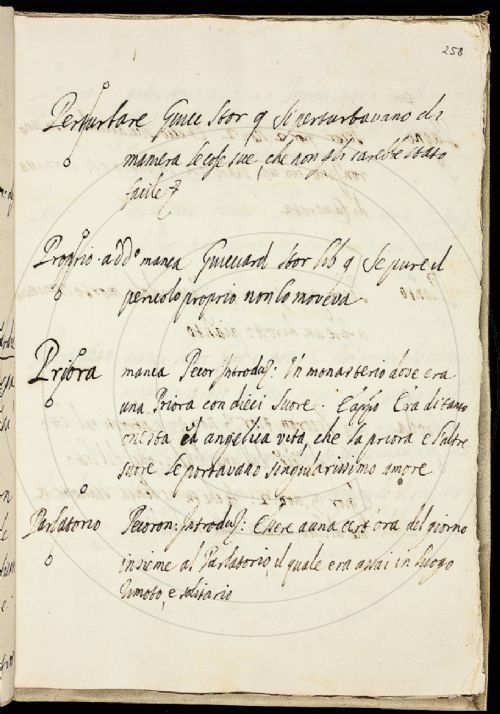 258
Perturbare Guicc stor 9 si perturbavano di
maniera le cose sue, che non gli sarebbe stato
facile
Proprio add.o manca Guicciard stor lib 9 Se pure il
pericolo proprio non lo moveva
Priora manca Pecor Introduz: In monasterio dove era
una Priora con dieci suore. E appo Era di tanto
onesta ed angelica vita, che la priora e l'altre
suore le portavano singularissimo amore
Parlatorio Pecoron: Introduz: Essere a una cert' ora del giorno
insieme al Parlatorio, il quale era assai in luogo
rimoto, e solitario